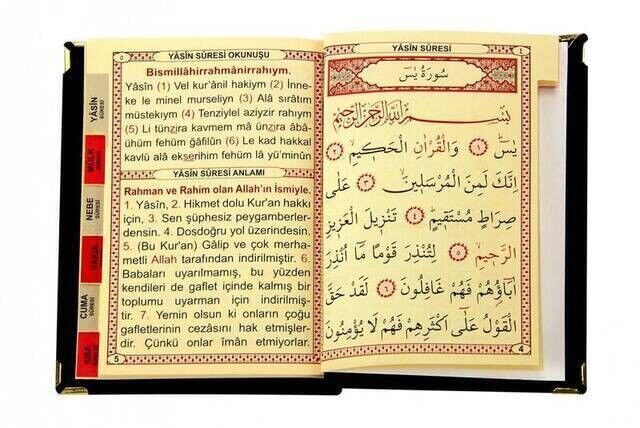 ٥
YÂSÎN SÛRESİ OKUNUŞU
Bismillâhirrahmânirrahıym.
Yâsîn (1) Vel kur'ânil hakiym (2) İnne-
ke le minel murseliyn (3) Alâ sırâtım
müstekıym (4) Tenziylel aziyzir rahiym
(5) Li tünzira kavmem mâ ünzira âbâ-
ühüm fehüm gâfilûn (6) Le kad hakkal
kavlü alâ ekserihim fehüm lâ yü'minûn
YÂSÎN SÛRESİ ANLAMI
Rahman ve Rahim olan Allah'ın İsmiyle.
1. Yâsîn, 2. Hikmet dolu Kur'an hakkı
için, 3. Sen şüphesiz peygamberler-
densin. 4. Dosdoğru yol üzerindesin.
5. (Bu Kur'an) Gâlip ve çok merha-
metli Allah tarafından indirilmiştir. 6.
Babaları uyarılmamış, bu yüzden
kendileri de gaflet içinde kalmış bir
toplumu uyarman için indirilmiş-
tir. 7. Yemin olsun ki onların çoğu
gafletlerinin cezâsını hak etmişler-
dir. Çünkü onlar îmân etmiyorlar.
5
YÂSÎN
SÛRESİ
MÜLK
NEBE
SÛRESİ
VAKIA
CUMA
SÛRESİ
KISA
YÂSÎN SÛRESİ
٤
سُورَةُ يٰسٓ
بِسْمِ اللّٰهِ الرَّحْمٰنِ الرَّحِيمِ
يٰسٓ ﴿١﴾ وَالْقُرْاٰنِ الْحَكِيمِ ﴿٢﴾
اِنَّكَ لَمِنَ الْمُرْسَلِينَ ﴿٣﴾ عَلٰى
صِرَاطٍ مُسْتَقِيمٍ ﴿٤﴾ تَنْزِيلَ الْعَزِيزِ
الرَّحِيمِ ﴿٥﴾ لِتُنْذِرَ قَوْمًا مَٓا اُنْذِرَ
اٰبَٓاؤُ۬هُمْ فَهُمْ غَافِلُونَ ﴿٦﴾ لَقَدْ حَقَّ
الْقَوْلُ عَلٰٓى اَكْثَرِهِمْ فَهُمْ لَا يُؤْمِنُونَ
4